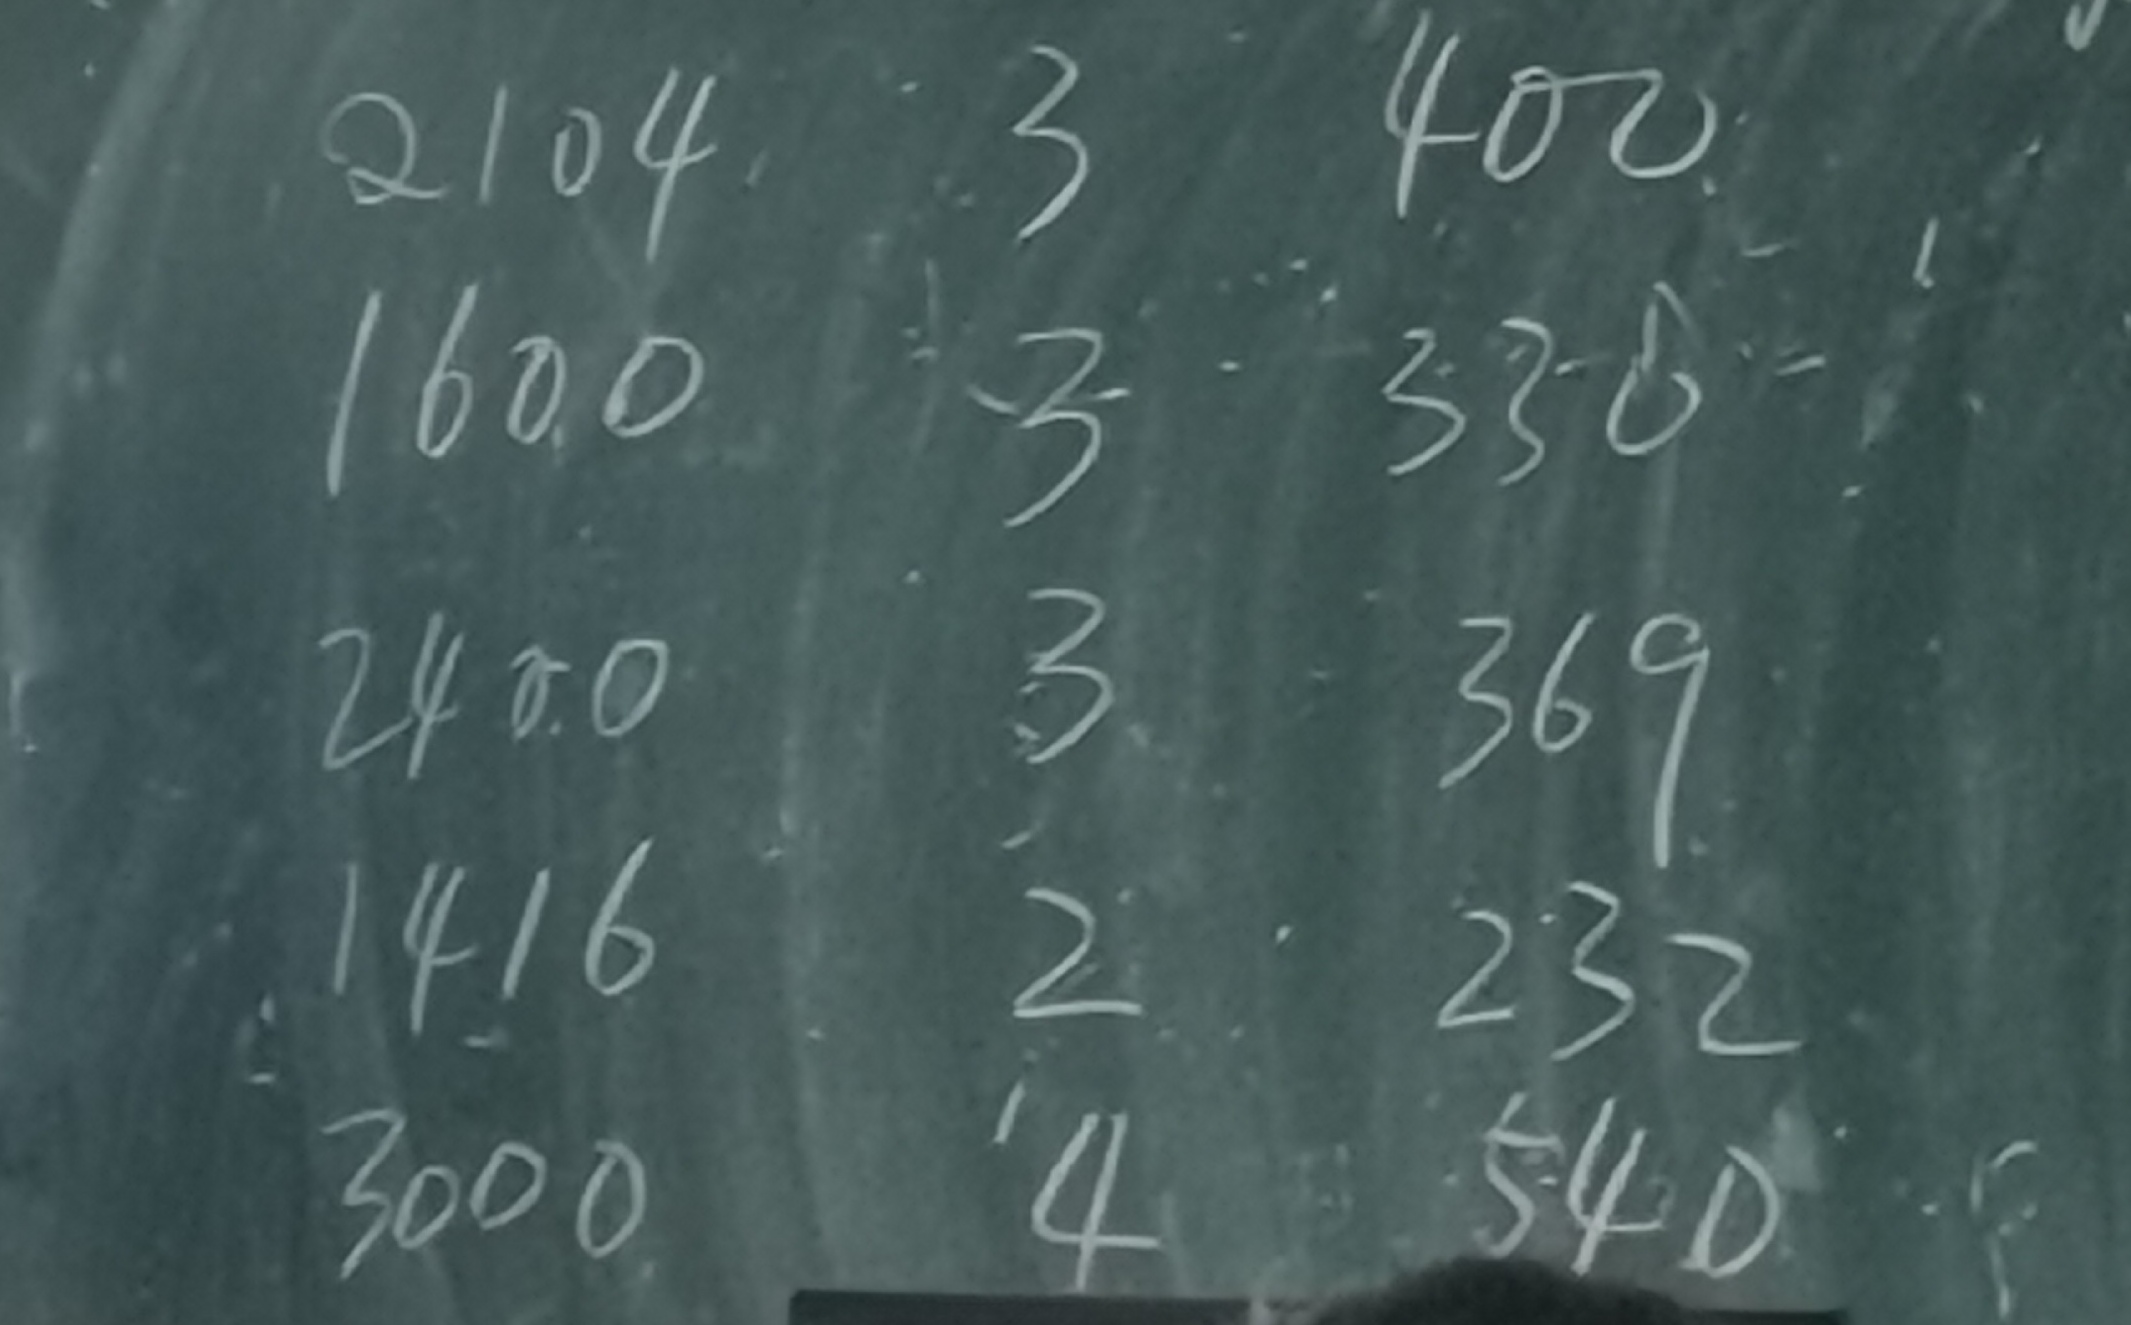 2104 3 400
1600 3 330
2400 3 369
1416 2 232
3000 4 540